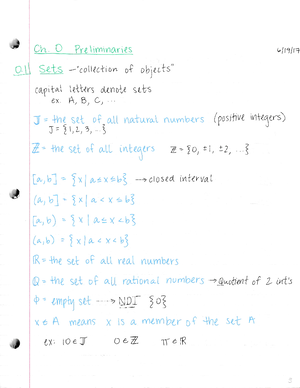 Ch. 0 Preliminaries
6/19/17
0.1 Sets – "collection of objects"
capital letters denote sets
ex. A, B, C, ...
J = the set of all natural numbers (positive integers)
J = {1, 2, 3, ...}
ℤ = the set of all integers ℤ = {0, ±1, ±2, ...}
[a, b] = {x | a ≤ x ≤ b} → closed interval
(a, b] = {x | a < x ≤ b}
[a, b) = {x | a ≤ x < b}
(a, b) = {x | a < x < b}
ℝ = the set of all real numbers
ℚ = the set of all rational numbers → Quotient of 2 int's
Φ = empty set ---> NOT {0}
x ∈ A means x is a member of the set A
ex: 10 ∈ J 0 ∈ ℤ π ∈ ℝ